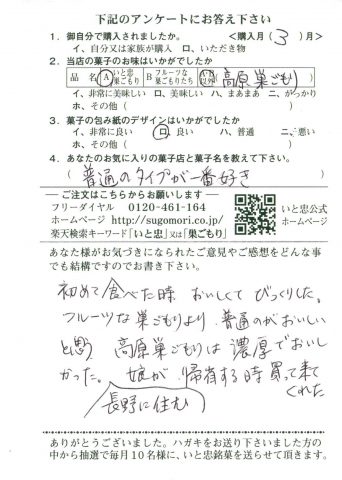 下記のアンケートにお答え下さい
1. 御自分で購入されましたか。 <購入月( 3 )月>
イ、自分又は家族が購入 ロ、いただき物
2. 当店の菓子のお味はいかがでしたか
品名 A いと忠巣ごもり B フルーツな巣ごもりたち いと忠以外 ( 高原巣ごもり )
イ、非常に美味しい ロ、美味しい ハ、まあまあ ニ、がっかり
ホ、その他( )
3. 菓子の包み紙のデザインはいかがでしたか
イ、非常に良い ロ、良い ハ、普通 ニ、悪い
ホ、その他( )
4. あなたのお気に入りの菓子店と菓子名を教えて下さい。
( 普通のタイプが一番好き )
―ご注文はこちらからお願いします―
フリーダイヤル 0120-461-164
ホームページ http://sugomori.co.jp/
楽天検索キーワード「いと忠」又は「巣ごもり」
いと忠公式
ホームページ
あなた様がお気づきになられたご意見やご感想をどんな事
でも結構ですのでお書き下さい。
初めて食べた時 おいしくて びっくりした。
フルーツな巣ごもりより、普通のがおいしい
と思う 高原巣ごもりは濃厚でおいし
かった。 娘が 帰省する時 買って来て
くれた
長野に住む
ありがとうございました。ハガキをお送り下さいました方の
中から抽選で毎月10名様に、いと忠銘菓を送らせて頂きます。